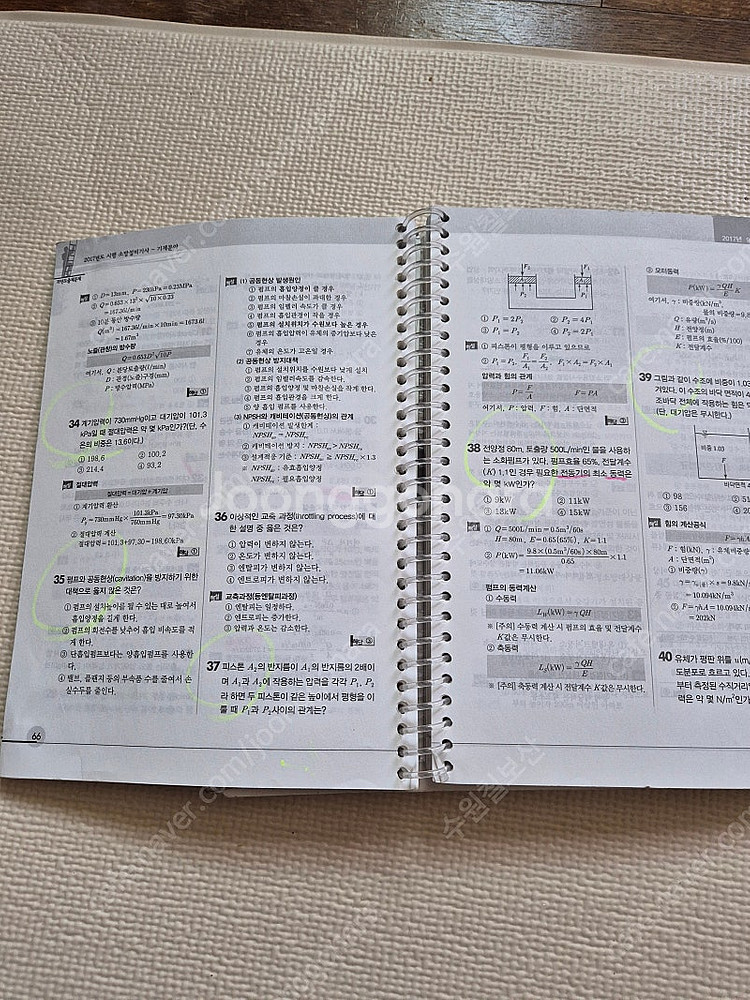 2017년도 시행 소방설비기사 - 기계분야
① D=13mm, P=230kPa=0.23MPa
② Q=0.653×13²×√10×0.23
=167.36l/min
③ 10분 동안 방수량
=167.36l/min×10min=1673.6l
=1.67m³
노즐(관창)의 방수량
Q=0.653D²√10P
여기서, Q : 분당토출량(l/min)
D : 관경(노즐)구경(mm)
P : 방수압력(MPa)
34 계기압력이 730mmHg이고 대기압이 101.3
kPa일 때 절대압력은 약 몇 kPa인가?(단, 수
은의 비중은 13.6이다.)
① 198.6 ② 100.2
③ 214.4 ④ 93.2
절대압력
절대압력=대기압+계기압
① 계기압력 환산
Pg=730mmHg×101.3kPa/760mmHg=97.30kPa
② 절대압력 계산
절대압력=101.3+97.30=198.60kPa
35 펌프의 공동현상(cavitation)을 방지하기 위한
대책으로 옳지 않은 것은?
① 펌프의 설치높이를 될 수 있는 대로 높여서
흡입양정을 길게 한다.
② 펌프의 회전수를 낮추어 흡입 비속도를 적
게 한다.
③ 단흡입펌프보다는 양흡입펌프를 사용한
다.
④ 밸브, 플랜지 등의 부속품 수를 줄여서 손
실수두를 줄인다.
66
(1) 공동현상 발생원인
① 펌프의 흡입양정이 클 경우
② 펌프의 마찰손실이 과대한 경우
③ 펌프의 임펠러 속도가 클 경우
④ 펌프의 흡입관경이 적을 경우
⑤ 펌프의 설치위치가 수원보다 높은 경우
⑥ 펌프의 흡입압력이 유체의 증기압보다 낮은
경우
⑦ 유체의 온도가 고온일 경우
(2) 공동현상 방지대책
① 펌프의 설치위치를 수원보다 낮게 설치
② 펌프의 임펠러속도를 감속한다.
③ 펌프의 흡입양정 및 마찰손실을 작게 한다.
④ 펌프의 흡입관경을 크게 한다.
⑤ 양 흡입 펌프를 사용한다.
(3) NPSH와 캐비테이션(공동현상)의 관계
① 캐비테이션 발생한계 :
② 캐비테이션 방지 :
③ 설계적용 기준 :
: 유효흡입양정
: 필요흡입양정
36 이상적인 교축 과정(throttling process)에 대
한 설명 중 옳은 것은?
① 압력이 변하지 않는다.
② 온도가 변하지 않는다.
③ 엔탈피가 변하지 않는다.
④ 엔트로피가 변하지 않는다.
교축과정(등엔탈피과정)
① 엔탈피는 일정하다.
② 엔트로피는 증가한다.
③ 압력과 온도는 감소한다.
37 피스톤 A₂의 반지름이 A₁의 반지름의 2배이
며 A₁과 A₂에 작용하는 압력을 각각 P₁, P₂
라 하면 두 피스톤이 같은 높이에서 평형을 이
룰 때 P₁과 P₂사이의 관계는?
① P₁=2P₂ ② P₂=4P₁
③ P₁=P₂ ④ P₂=2P₁
① 피스톤이 평형을 이루고 있으므로
② P₁=P₂, F₁/A₁=F₂/A₂, F₁×A₂=F₂×A₁
압력과 힘의 관계
P=F/A F=PA
여기서, P : 압력, F : 힘, A : 단면적
38 전양정 80m, 토출량 500L/min인 물을 사용하
는 소화펌프가 있다. 펌프효율 65%, 전달계수
(K) 1.1인 경우 필요한 전동기의 최소 동력은
약 몇 kW인가?
① 9kW ② 11kW
③ 13kW ④ 15kW
① Q=500L/min=0.5m³/60s
H=80m, E=0.65(65%), K=1.1
② P(kW)=9.8×(0.5m³/60s)×80m/0.65×1.1
=11.06kW
펌프의 동력계산
① 수동력
(kW)=γQH
※ [주의] 수동력 계산 시 펌프의 효율 및 전달계수
K값은 무시한다.
② 축동력
(kW)=γQH/E
※ [주의] 축동력 계산 시 전달계수 K값은 무시한다.
2017년
③ 모터동력
P(kW)=γQH/E K
여기서, γ : 비중량(kN/m³,
물의 비중량=9.8
Q : 유량(m³/s)
H : 전양정(m)
E : 펌프의 효율(%/100)
K : 전달계수
39 그림과 같이 수조에 비중이 1.03
(단, 대기압은 무시한다.)
비중 1.03
바닥면적
① 98 ② 51
③ 156 ④ 20
힘의 계산공식
F=γhA
F : 힘(kN), γ : 유체비중량
A : 단면적(m²)
① 비중량(γ)
=10.094kN/m³
② F=γhA=10.094kN
=202kN
40 유체가 평판 위를 u(m
도분포로 흐르고 있다.
부터 측정된 수직거리
력은 약 몇 N/m²인가